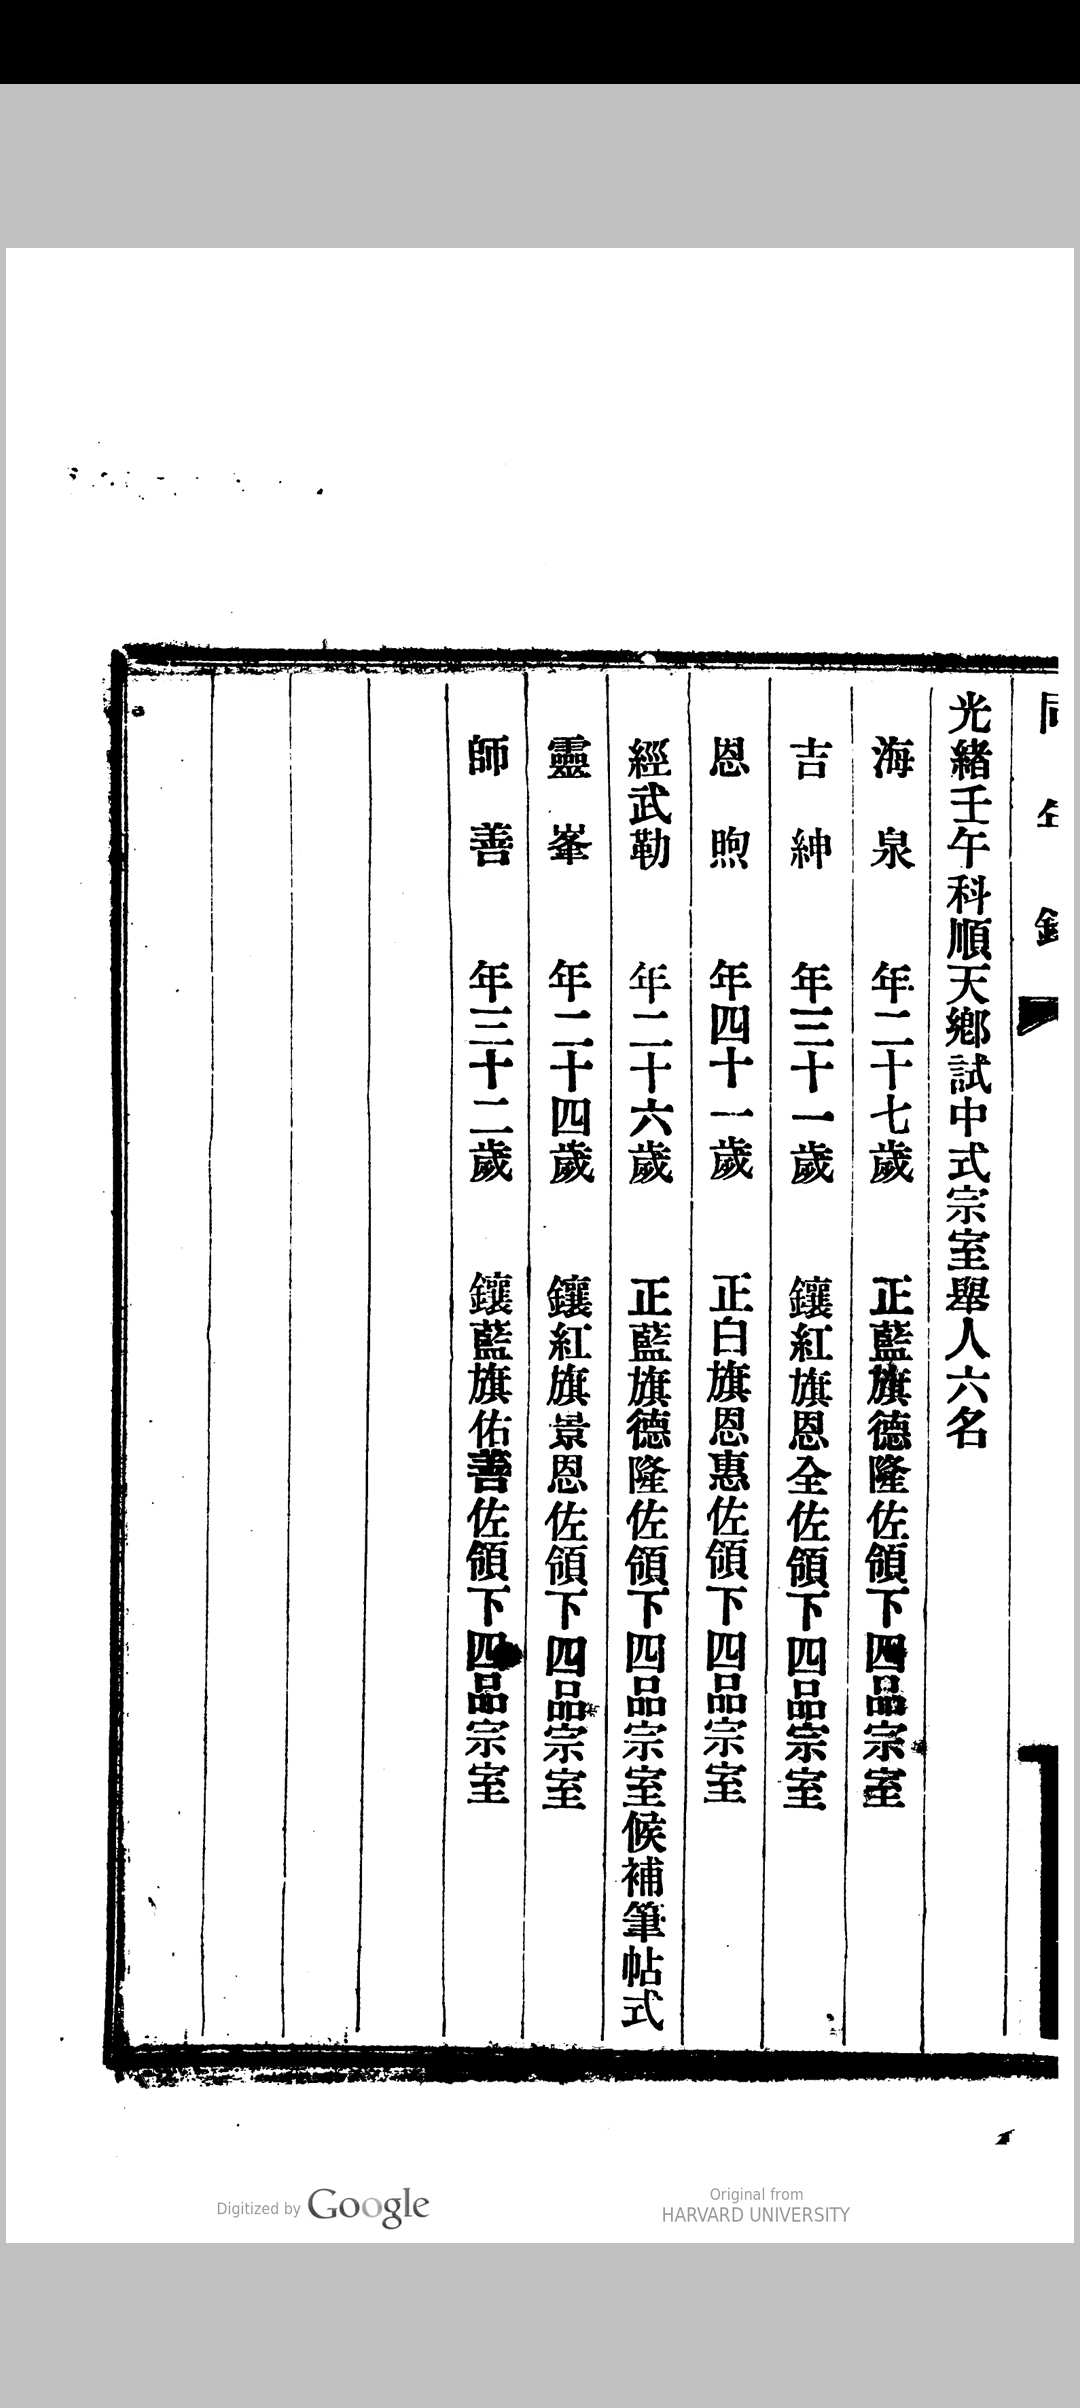 同年錄
光緒壬午科順天鄉試中式宗室舉人六名
海泉 年二十七歲 正藍旗德隆佐領下四品宗室
吉紳 年三十一歲 鑲紅旗恩全佐領下四品宗室
恩煦 年四十一歲 正白旗恩惠佐領下四品宗室
經武勒 年二十六歲 正藍旗德隆佐領下四品宗室候補筆帖式
靈峯 年二十四歲 鑲紅旗景恩佐領下四品宗室
師善 年三十二歲 鑲藍旗佑善佐領下四品宗室
Digitized by Google
Original from
HARVARD UNIVERSITY